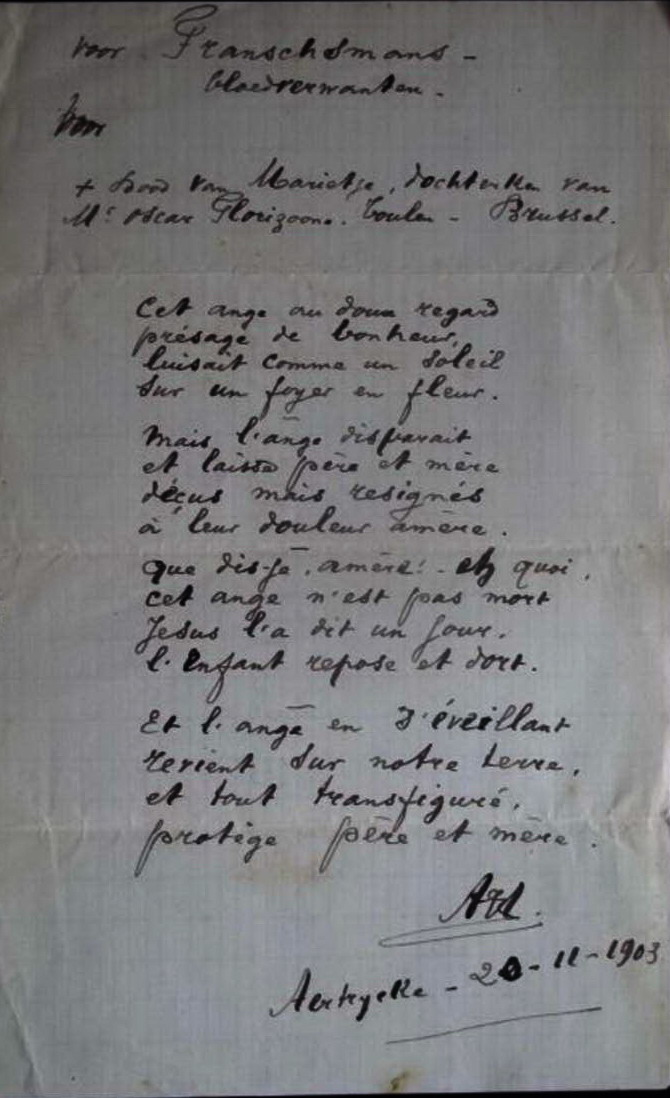 voor Franschsmans -
bloedverwanten -
voor
+ Dood van Marietje, dochterken van
Mr Oscar Florizoone. Toulen - Brussel.
Cet ange au doux regard
présage de bonheur,
luisait comme un soleil
sur un foyer en fleur.
Mais l'ange disparait
et laissa père et mère
déçus mais resignés
à leur douleur amère.
que dis-je, amère! - eh quoi,
cet ange n'est pas mort
Jesus l'a dit un jour.
l'Enfant repose et dort.
Et l'ange en s'éveillant
revient sur notre terre,
et tout transfiguré,
protège père et mère.
Aertrycke - 20-11-1903